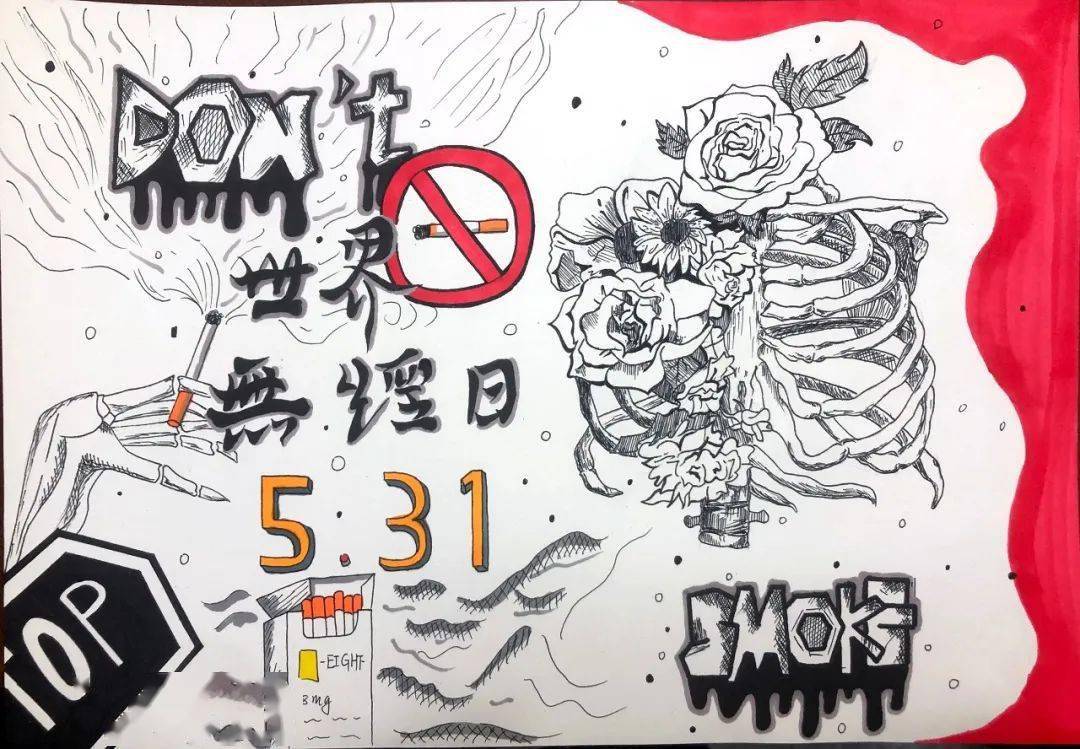 DON't
世界
無煙日
5.31
TOP
-EIGHT-
3mg
SMOKE